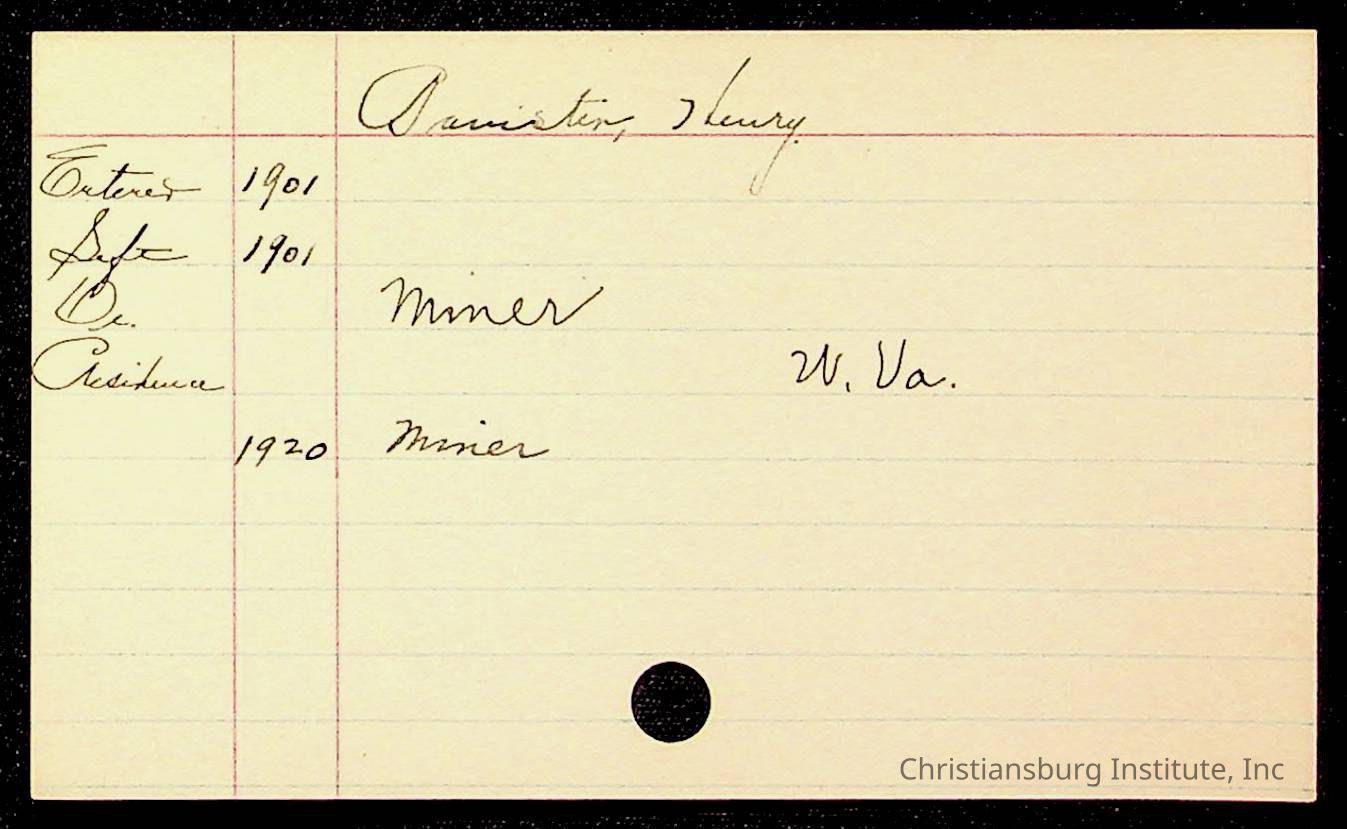 Banister, Henry
Entered 1901
Left 1901
Oc. Miner
Residence W. Va.
1920 Miner
Christiansburg Institute, Inc